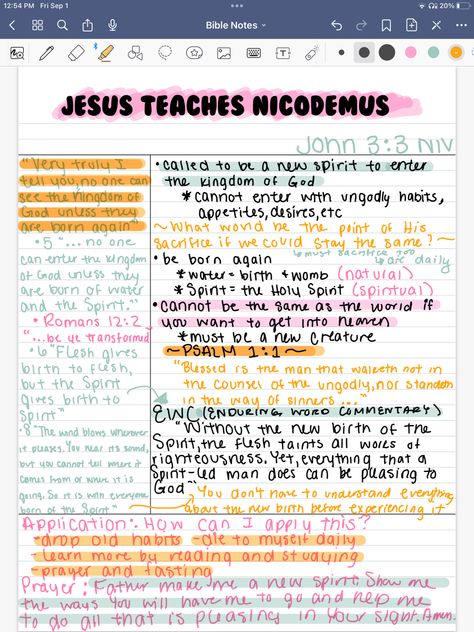 12:54 PM Fri Sep 1
20%
Bible Notes
JESUS TEACHES NICODEMUS
John 3:3 NIV
"Very truly I
tell you, no one can
see the kingdom of
God unless they
are born again"
• 5 "... no one
can enter the kingdom
of God unless they
are born of water
and the Spirit."
• Romans 12:2
"...be ye transformed
• 6 "Flesh gives
birth to flesh,
but the Spirit
gives birth to
Spirit"
• 8 "The wind blows wherever
it pleases. You hear its sound,
but you cannot tell where it
comes from or where it is
going. So it is with everyone
born of the Spirit"
• called to be a new spirit to enter
the kingdom of God
* cannot enter with ungodly habits,
appetites, desires, etc
~ What would be the point of His
sacrifice if we could stay the same? ~
• be born again
must sacrifice too
are daily
* water = birth & womb (natural)
* Spirit = the Holy Spirit (spiritual)
• cannot be the same as the world if
you want to get into heaven
* must be a new creature
~ PSALM 1:1 ~
"Blessed is the man that walketh not in
the counsel of the ungodly, nor standeth
in the way of sinners ..."
EWC (ENDURING WORD COMMENTARY)
"Without the new birth of the
Spirit, the flesh taints all works of
righteousness. Yet, everything that a
Spirit-led man does can be pleasing to
God"
You don't have to understand everything
about the new birth before experiencing it
Application: How can I apply this?
- drop old habits - die to myself daily
- learn more by reading and studying
- prayer and fasting
Prayer: Father make me a new spirit. Show me
the ways you will have me to go and help me
to do all that is pleasing in Your sight. Amen.